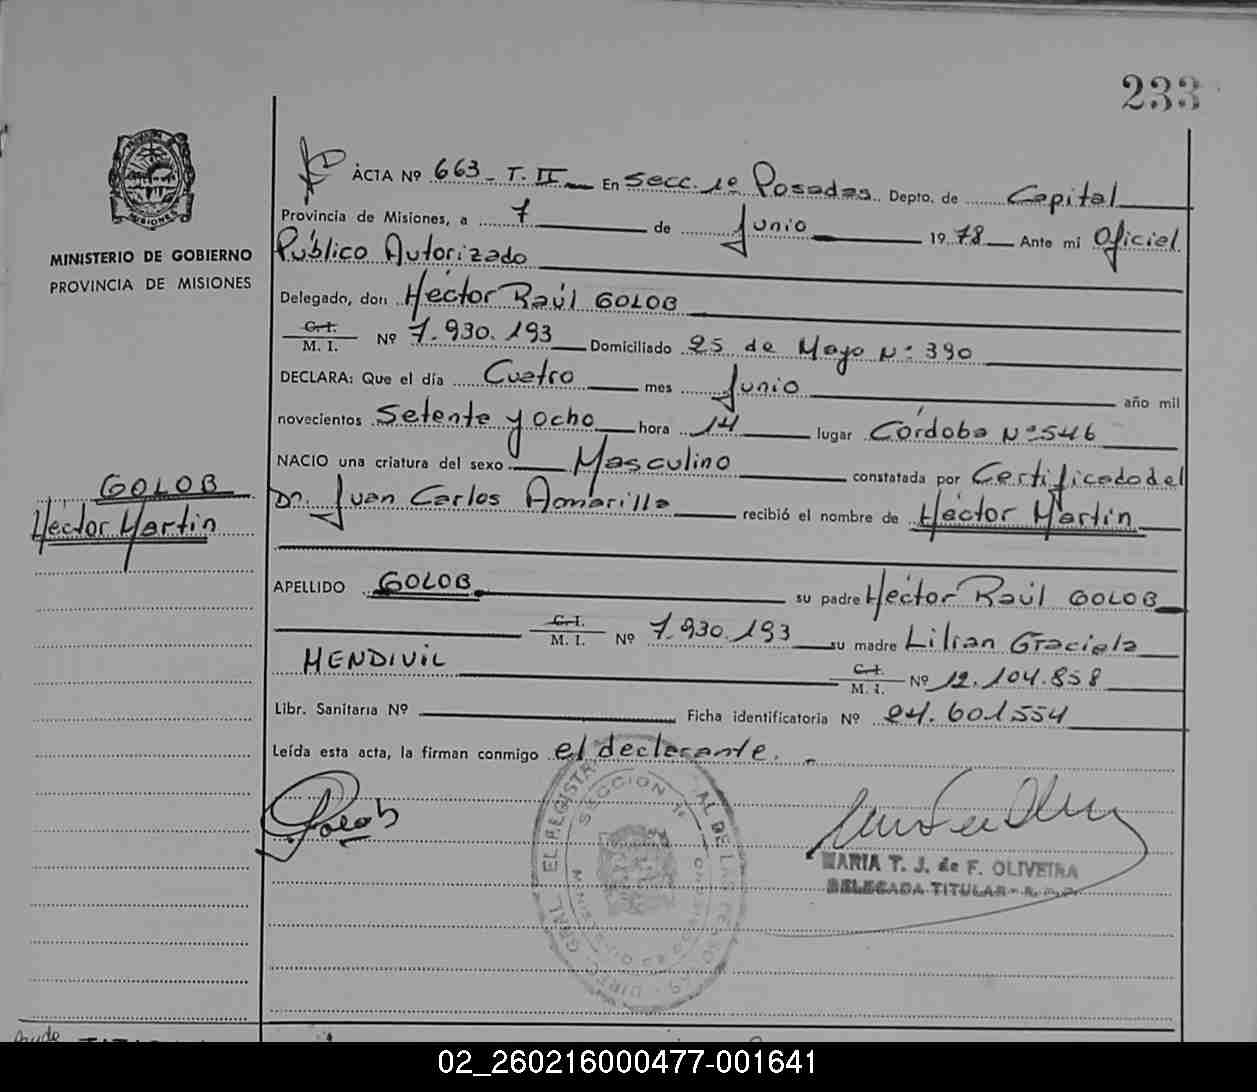 233
ACTA Nº 663 - T. II En Secc. 1º Posadas Depto. de Capital
Provincia de Misiones, a 7 de Junio 1978 Ante mi Oficial
Público Autorizado
Delegado, don Héctor Raúl GOLOB
C. I. M. I. Nº 7.930.193 Domiciliado 25 de Mayo Nº 390
DECLARA: Que el día Cuatro mes Junio año mil
novecientos Setenta y ocho hora 14 lugar Córdoba Nº 546
NACIO una criatura del sexo Masculino constatada por Certificado del
Dr. Juan Carlos Amarilla recibió el nombre de Héctor Martín
APELLIDO GOLOB su padre Héctor Raúl GOLOB
C. I. M. I. Nº 7.930.193 su madre Lilian Graciela
MENDIVIL C. I. M. I. Nº 12.104.858
Libr. Sanitaria Nº Ficha identificatoria Nº 24.601.554
Leída esta acta, la firman conmigo el declarante. -
MINISTERIO DE GOBIERNO
PROVINCIA DE MISIONES
GOLOB
Héctor Martín
Golob
MARIA T. J. de F. OLIVEIRA
DELEGADA TITULAR
SECCION 1ª
MISIONES
02_260216000477-001641